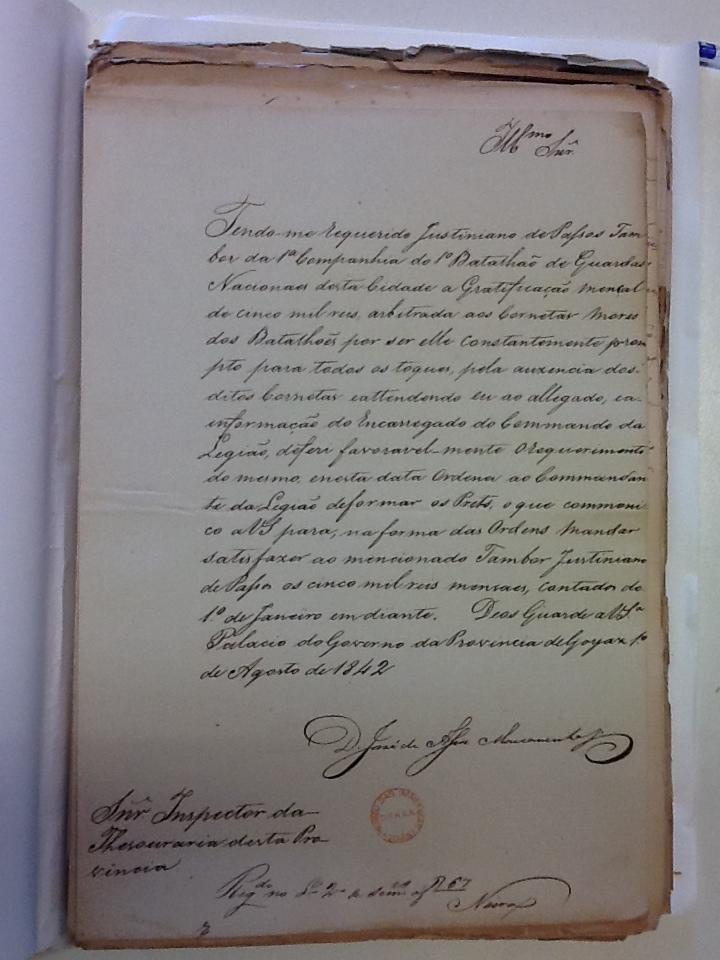 Illmo Snr.
Tendo-me requerido Justiniano de Passos Tam-
bor da 1ª Companhia do 1º Batalhaõ de Guardas
Nacionaes desta Cidade a Gratificação mensal
de cinco mil reis, arbitrada aos Cornetas Mores
dos Batalhoẽs por ser elle Constantemente prom
pto para todos os toques, pela auzencia dos
ditos Cornetas eattendendo eu ao allegado, ea
informação do Encarregado do Commando da
Legiaõ, deferi favoravel-mente orequerimento
do mesmo, enesta data Ordena ao Comandan
te da Legiaõ deformar os Prets, o que commoni
co aVS para, na forma das Ordens Mandar
satisfazer ao mencionado Tambor Justiniano
de Passos os cinco mil reis mensaes, contados do
1º de Janeiro em diante. Deos Guarde aVSª
Palacio do Governo da Provincia de Goyaz 1º
de Agosto de 1842
D. José de Assis Mascarenhas
Snr Inspector da
Thesouraria desta Pro
vincia
Regdo no Lo 2º a